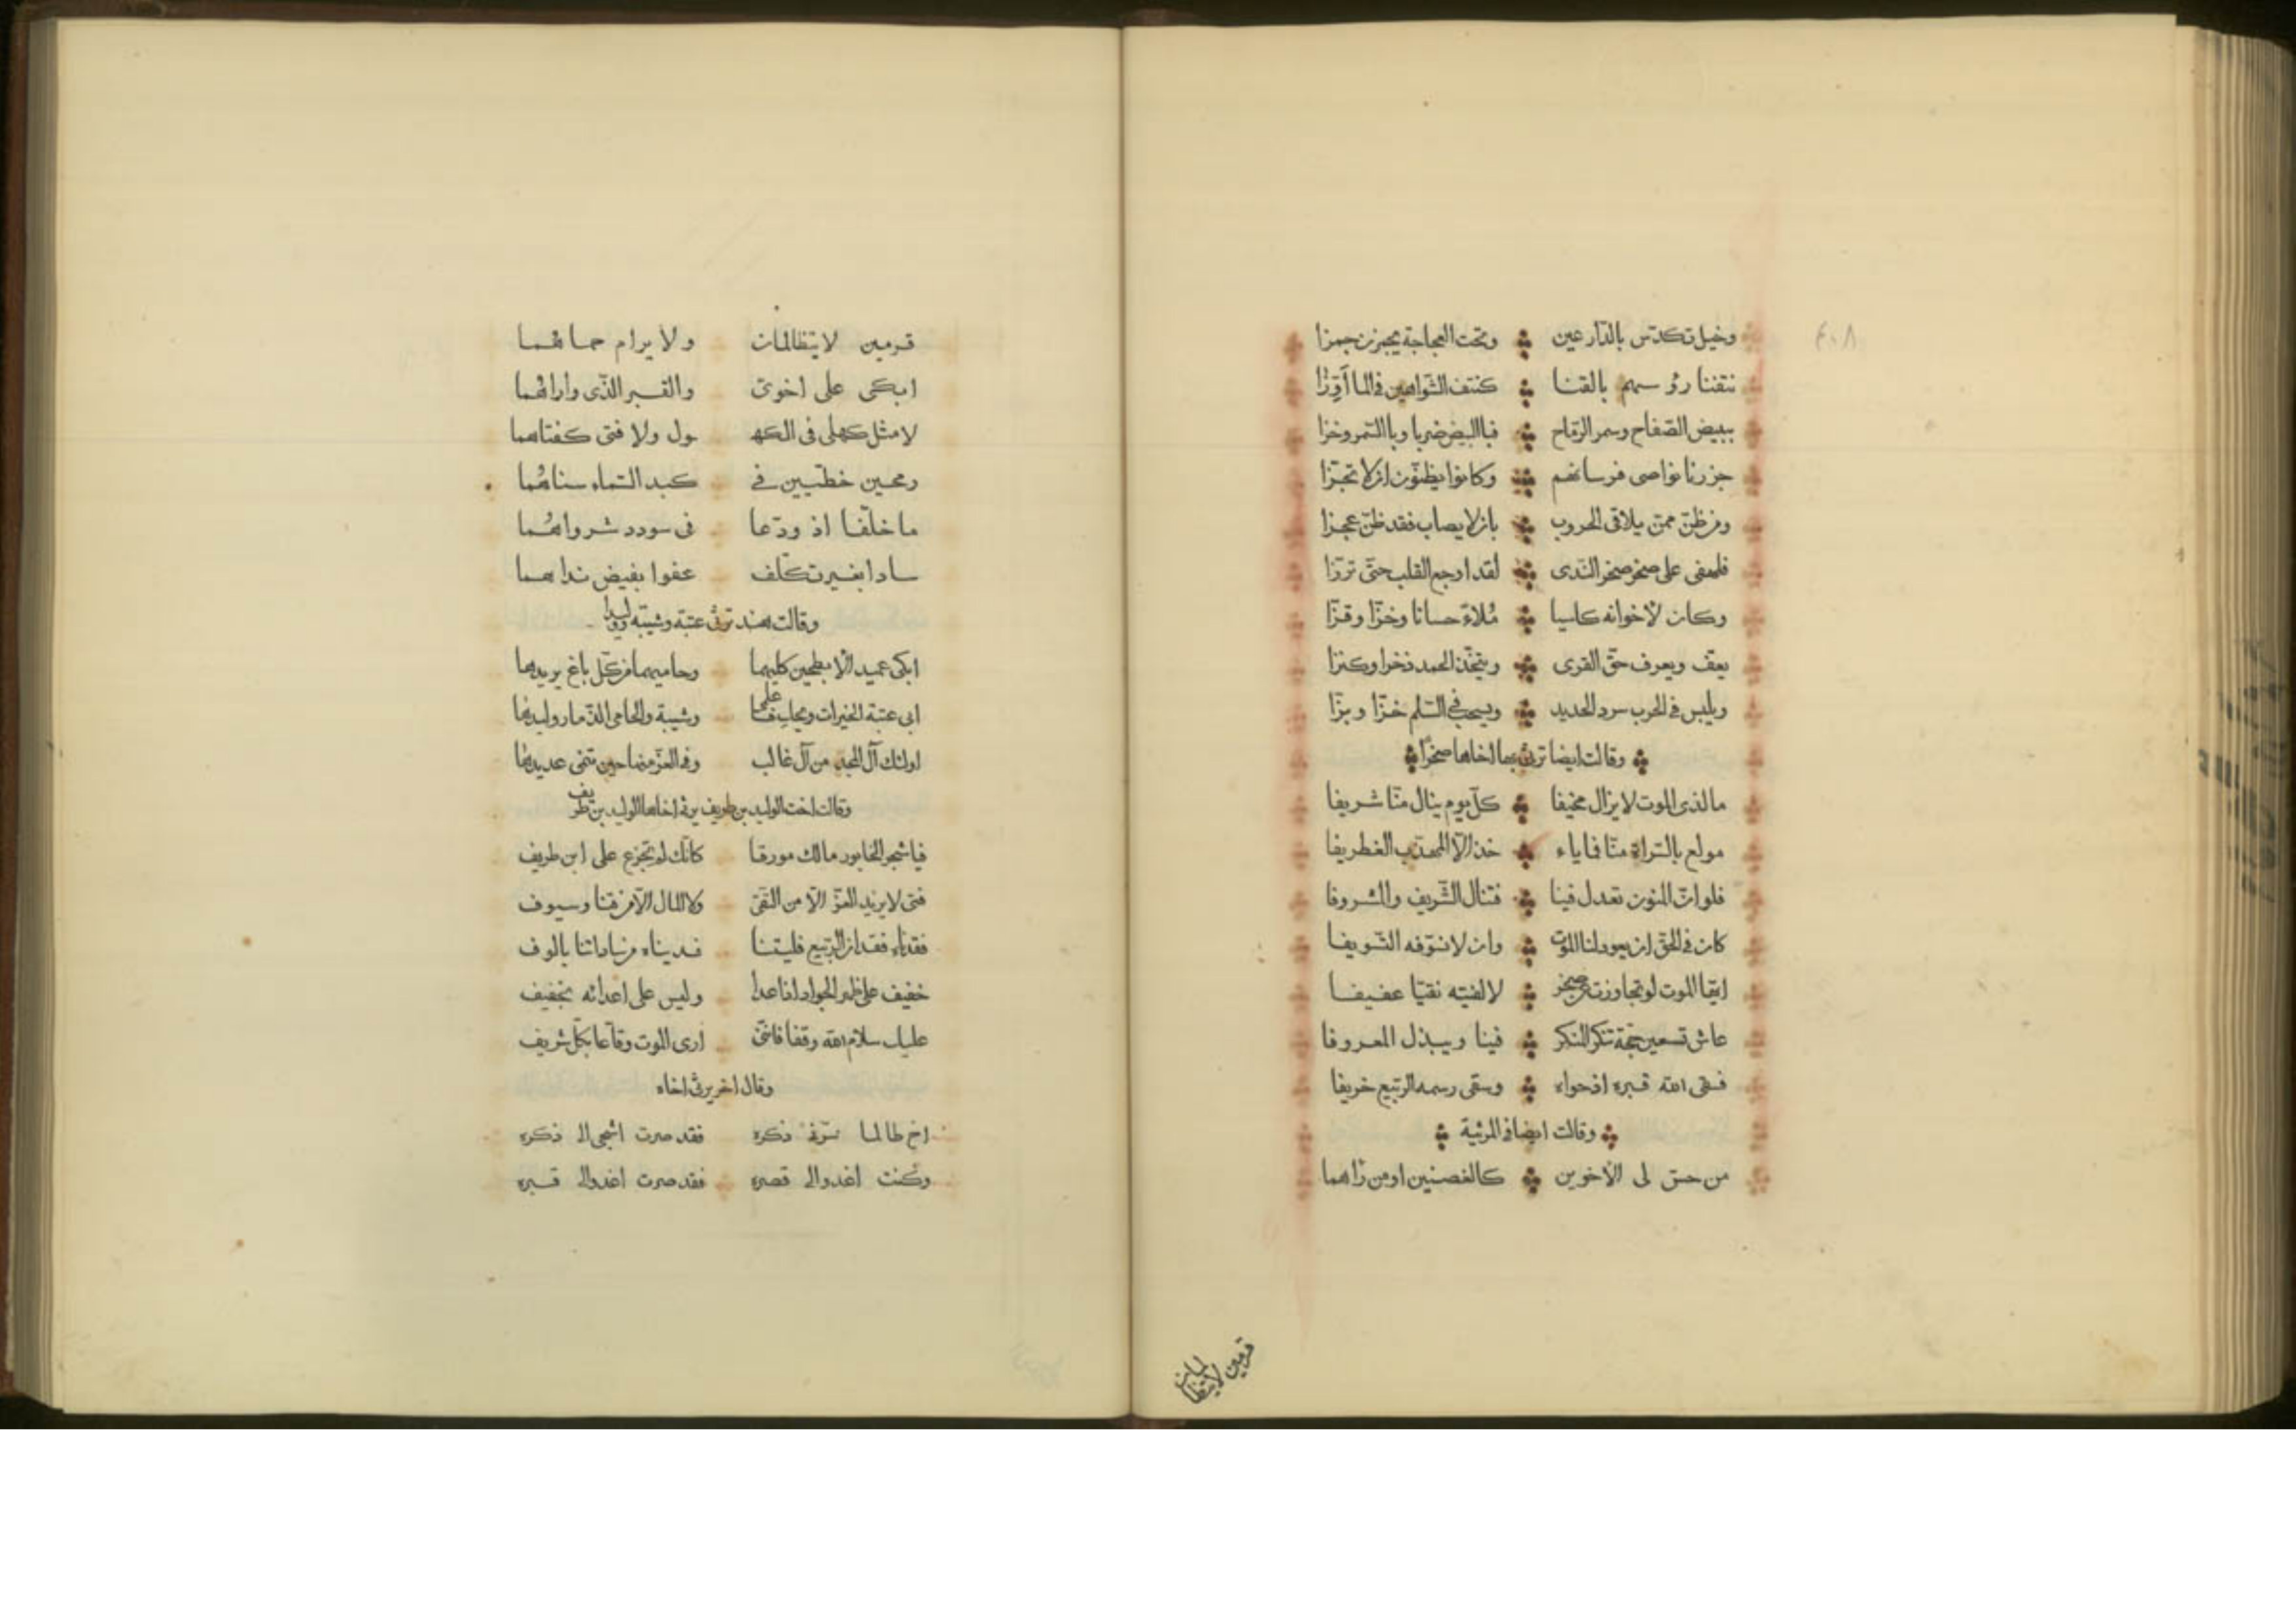 ٤٠٨
وخيل تكدّس بالدّارعين وتحت العجاجة يجمزن جمزا
نتفنا رؤسهم بالقنا كنتف الشّواهين في الما أَوِزّا
ببيض الصّفاح وسمر الرّماح فباالبيض ضربا وباالسّمر وخزا
جززنا نواصى فرسانهم وكانوا يظنّون ان لا تجزّا
ومن ظنّ ممن يلاقى الحروب بان لا يصاب فقد ظنّ عجزا
فلهفى على صخر صخر النّدى لقد اوجع القلب حتّى ترزّا
وكان لاخوانه كاسيا مُلاءً حسانا وخزّا وقزّا
يعف ويعرف حقّ القرى ويتّخذ الحمد ذخرا وكنزا
ويلبس في الحرب سرد الحديد ويسحب في السّلم خزّا وبزّا
وقالت ايضا ترثى بها اخاها صخرًا
مالذى الموت لا يزال مخيفا كلّ يوم ينال منّا شريفا
مولع بالسّراة منّا فاياء خذ الّا المهذّب الغطريفا
فلو انّ المنون تعدل فينا فتنال الشّريف والمشروفا
كان في الحقّ ان يعود لنا الموت وان لا نسوّفه التّسويفا
ايّها الموت لو تجاوزت عن صخر لالفيته نقيّا عفيفا
عاش تسعين حجّة تنكر المنكر فينا ويبذل المعروفا
فسقى الله قبره اذ حواه وسقى رسمه الرّبيع خريفا
وقالت ايضا في المرثية
من حسّ لى الاخوين كالغصنين او من راهما
قرمين لا يتظالمان
قرمين لا يتظالمان ولا يرام حماهما
ابكى على اخوىّ والقبر الذّى واراهما
لا مثل كهلى فى الكهـ ـول ولا فتى كفتاهما
رمحين خطّيين في كبد السّماء سناهُما
ما خلّفا اذ ودّعا فى سودد شرواهُما
سادا بغير تكلّف عفوا بفيض نداهما
وقالت هند ترثى عتبة وشيبه ووليدا
ابكى عميد الابطحين كليهما وحاميهما من كلّ باغ يريدهما
ابى عتبة الخيرات ويحك فاعلمى وشيبة والحامى الذّمار وليدها
اولئك آل المجد من آل غالب وفى العزّ منها حين تنمى عديدها
وقالت اخت الوليد بن طريف يرثى اخاها الوليد بن طريف
فيا شجر الخابور مالك مورقا كانّك لم تجزع على ابن طريف
فتى لا يريد العزّ الّا من التّقى ولا المال الّا من قنا وسيوف
فقدناه فقدان الرّبيع فليتنا فديناه من ساداتنا بالوف
خفيف على ظهر الجواد اذا عدا وليس على اعدائه بخفيف
عليك سلام الله وقفا فانّنى ارى الموت وقّاعا بكلّ شريف
وقال اخر يرثى اخاه
اخ طالما سرّنى ذكره فقد صرت اشجى الى ذكره
وكنت اغدو الى قصره فقد صرت اغدو الى قبره